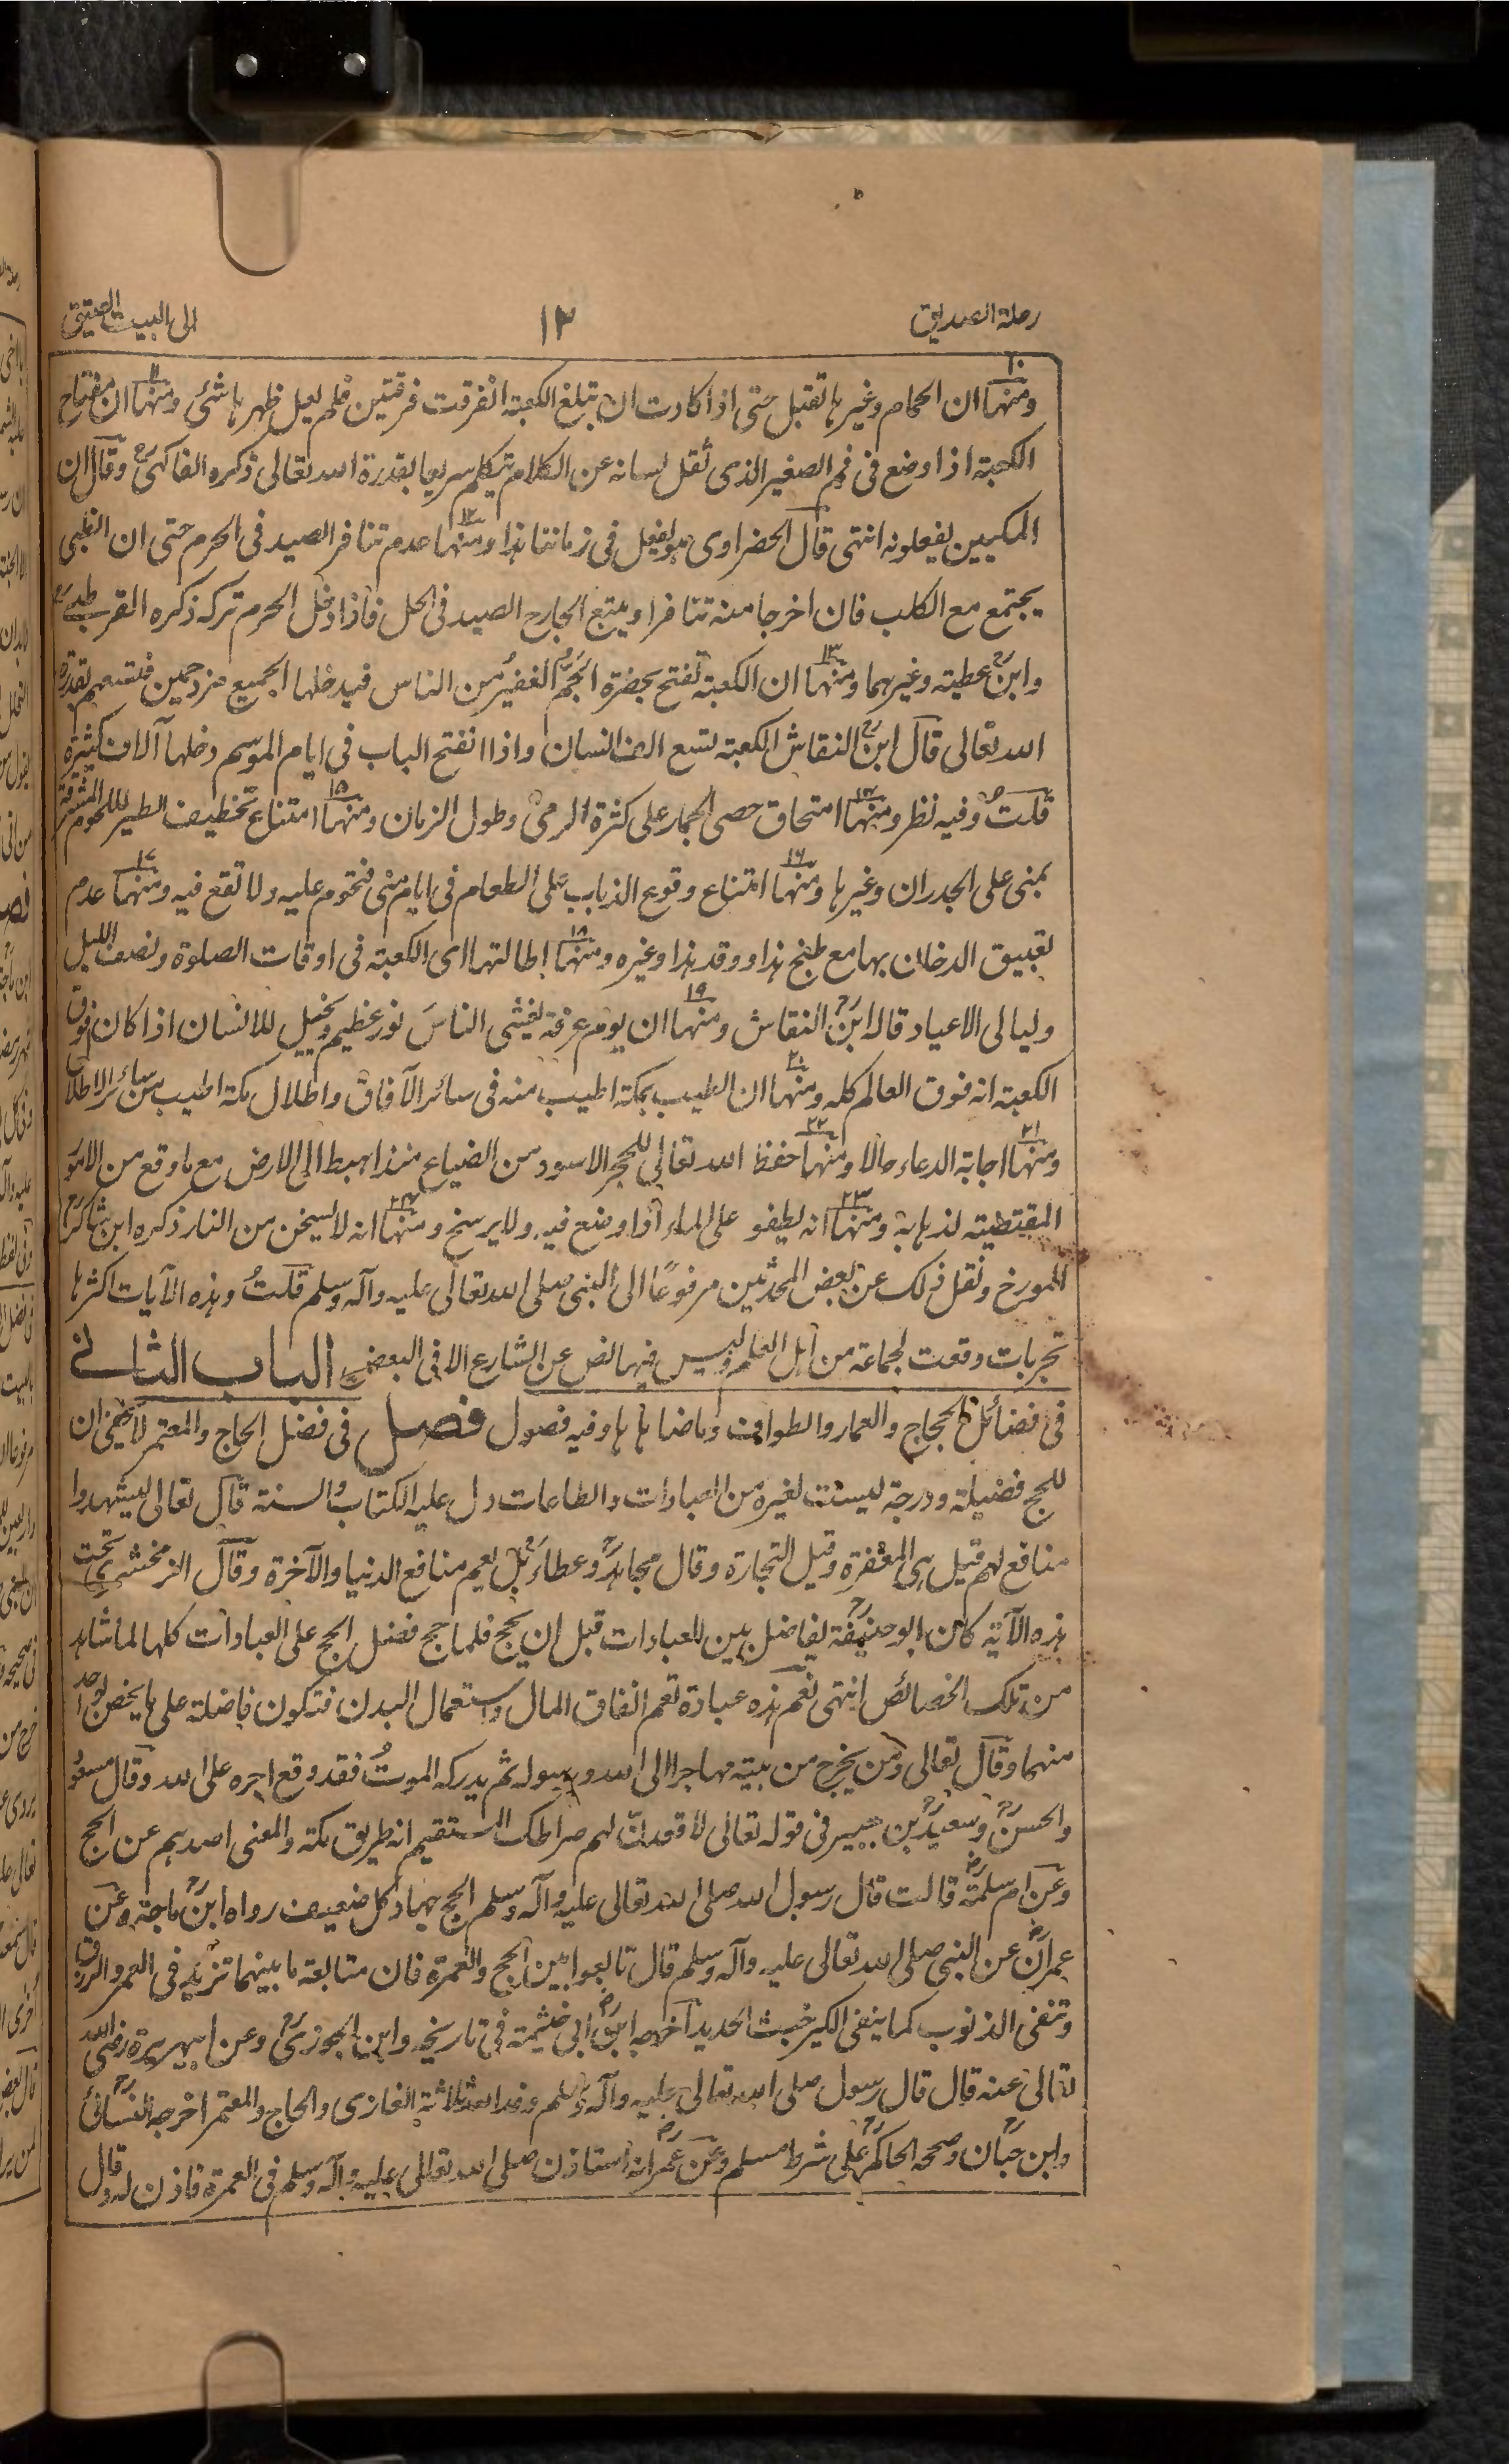 رحلة الصديق
١٢
الى البيت العتيق
ومنها١٠ ان الحمام وغيرها تقبل حتى اذا كادت ان تبلغ الكعبة انفرقت فرقتين فلم يعل ظهرها شئ ومنها١١ ان مفتاح
الكعبة اذا وضع فى فم الصغير الذى ثقل لسانه عن الكلام يتكلم سريعا بقدرة الله تعالى ذكره الفاكهىؒ وقال ان
المكيين يفعلونه انتهى قال الحضراوى هو يفعل فى زماننا هذا ومنها١٢ عدم تنافر الصيد فى الحرم حتى ان الظبى
يجتمع مع الكلب فان اخرجا منه تنافرا ويتبع الجارح الصيد فى الحل فاذا دخل الحرم تركه ذكره القرطبىؒ
وابنؒ عطية وغيرهما ومنها١٣ ان الكعبة تفتح بحضرة الجَمّ الغفير من الناس فيدخلها الجميع مزدحمين فتسعهم بقدرة
الله تعالى قال ابنؒ النقاش الكعبة تسع الف انسان واذا انفتح الباب فى ايام الموسم دخلها آلاف كثيرة
قلتُ وفيه نظر ومنها١٤ امتحاق حصى الجمار على كثرة الرمى وطول الزمان ومنها١٥ امتناع تخطيف الطير للحوم المشرقة
بمنى على الجدران وغيرها ومنها١٦ امتناع وقوع الذباب على الطعام فى ايام منى فتحوم عليه ولا تقع فيه ومنها١٧ عدم
تعبيق الدخان بها مع طبخ هذا ووقد هذا وغيره ومنها١٨ اطالتها اى الكعبة فى اوقات الصلوة ونصف الليل
وليالى الاعياد قاله ابنؒ النقاش ومنها١٩ ان يوم عرفة يغشى الناسَ نور عظيم ويخيل للانسان اذا كان فوق
الكعبة انه فوق العالم كله ومنها٢٠ ان الطيب بمكة اطيب منه فى سائر الآفاق واظلال مكة اطيب من سائر الاظلال
ومنها٢١ اجابة الدعاء حالا ومنها٢٢ حفظ الله تعالى للحجر الاسود من الضياع منذ اهبط الى الارض مع ما وقع من الامور
المقتضية لذهابه ومنها٢٣ انه يطفو على الماء اذا وضع فيه ولا يرسخ ومنها٢٤ انه لا يسخن من النار ذكره ابن شاكرؒ
المورخ ونقل ذلك عن بعض المحدثين مرفوعًا الى النبى صلى الله تعالى عليه وآله وسلم قلتُ وهذه الآيات اكثرها
تجربات وقعت لجماعة من اهل العلم وليس فيها نص عن الشارع الا فى البعض الباب الثانى
فى فضائل الحجاج والعمار والطواف وما ضاهاها وفيه فصول فصل فى فضل الحاج والمعتمر لا يخفى ان
للحج فضيلة ودرجة ليست لغيره من العبادات والطاعات دل عليه الكتاب والسنة قال تعالى ليشهدوا
منافع لهم قيل هى المغفرة وقيل التجارة وقال مجاهدؒ وعطاءؒ بل يعم منافع الدنيا والآخرة وقال الزمخشرى تحت
هذه الآية كان ابو حنيفةؒ يفاضل بين العبادات قبل ان يحج فلما حج فضل الحج على العبادات كلها لما شاهد
من تلك الخصائص انتهى نعم هذه عبادة تعم انفاق المال واستعمال البدن فتكون فاضلة على ما يختص لواحد
منهما وقال تعالى ومن يخرج من بيته مهاجرا الى الله ورسوله ثم يدركه الموتُ فقد وقع اجره على الله وقال مسعود
والحسنؒ وسعيدؒ بن جبير فى قوله تعالى لأقعدنّ لهم صراطك المستقيم انه طريق مكة والمعنى اصدهم عن الحج
وعن ام سلمةؓ قالت قال رسول الله صلى الله تعالى عليه وآله وسلم الحج جهاد كل ضعيف رواه ابنؒ ماجة وعن
عمرانؓ عن النبى صلى الله تعالى عليه وآله وسلم قال تابعوا بين الحج والعمرة فان متابعة ما بينهما تزيد فى العمر والرزق
وتنفى الذنوب كما ينفى الكير خبث الحديد اخرجه ابنؒ ابى خيثمة فى تاريخه وابن الجوزىؒ وعن ابى هريرة رضى الله
تعالى عنه قال قال رسول صلى الله تعالى عليه وآله وسلم وفد الله ثلاثة الغازى والحاج والمعتمر اخرجه النسائىؒ
وابن حبّان وصححه الحاكمؒ على شرط مسلم وعن عمرؓ انه استاذن صلى الله تعالى عليه وآله وسلم فى العمرة فاذن له وقال